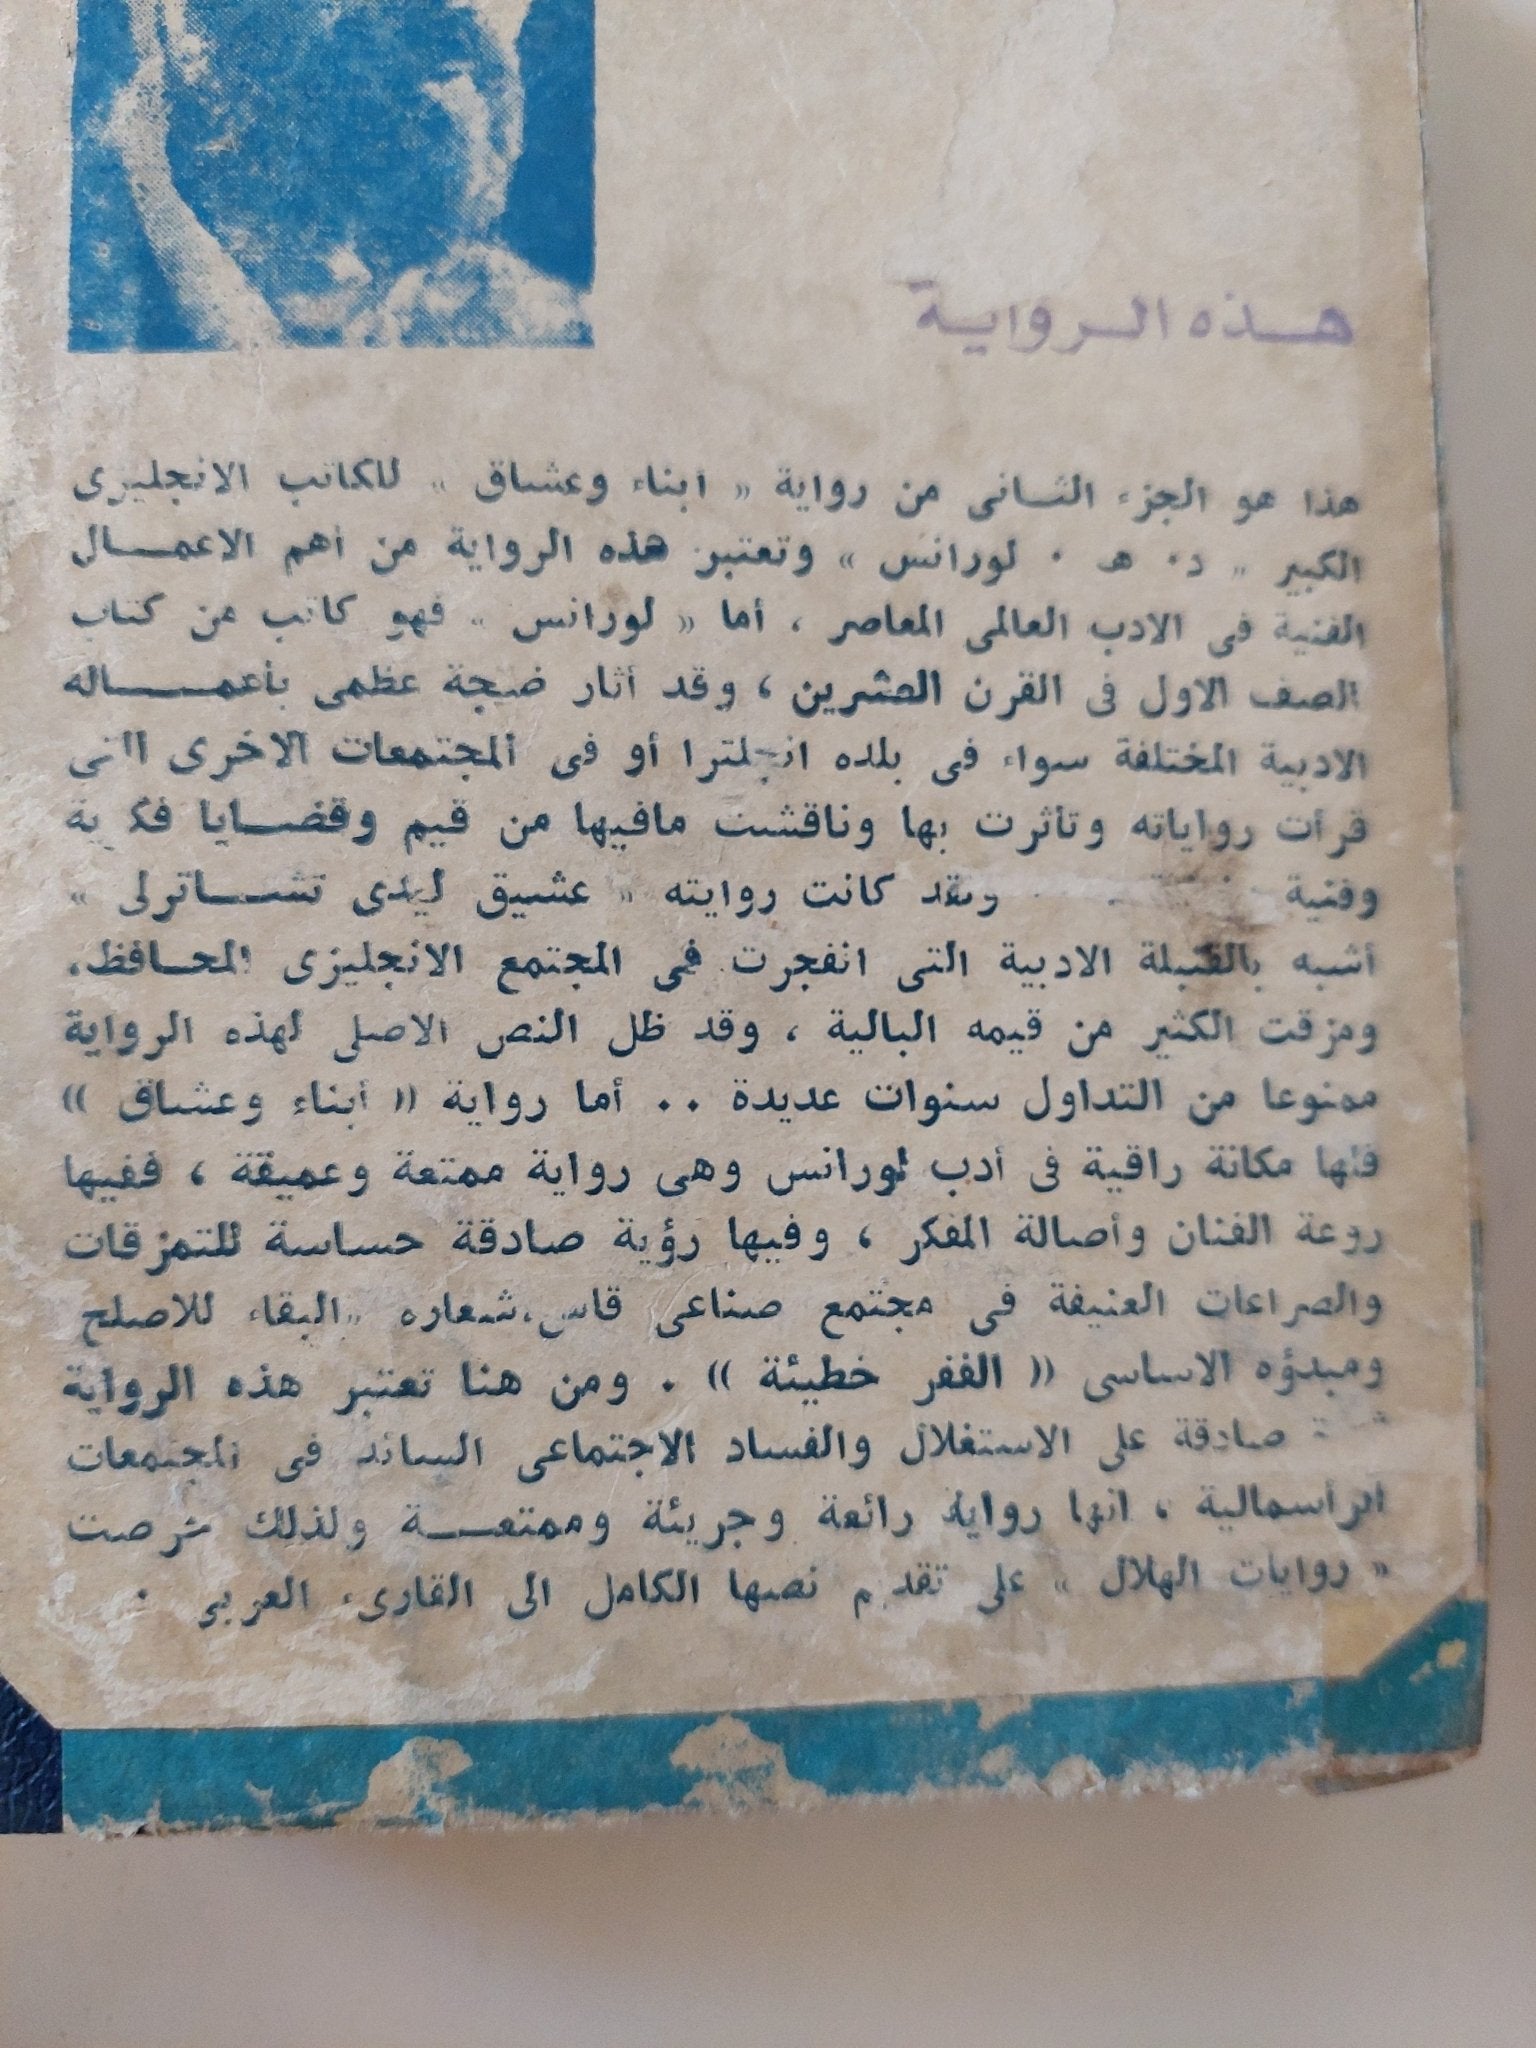 هذه الرواية
هذا هو الجزء الثانى من رواية « أبناء وعشاق » للكاتب الانجليزى
الكبير « د . هـ . لورانس » وتعتبر هذه الرواية من أهم الاعمال
الفنية فى الادب العالمى المعاصر ، أما « لورانس » فهو كاتب من كتاب
الصف الاول فى القرن العشرين ، وقد أثار ضجة عظمى بأعماله
الادبية المختلفة سواء فى بلده انجلترا أو فى المجتمعات الاخرى التى
قرأت رواياته وتأثرت بها وناقشت مافيها من قيم وقضايا فكرية
وفنية ولقد كانت روايته « عشيق ليدى تشاترلى »
أشبه بالقنبلة الادبية التى انفجرت فى المجتمع الانجليزى المحافظ،
ومزقت الكثير من قيمه البالية ، وقد ظل النص الاصلى لهذه الرواية
ممنوعا من التداول سنوات عديدة .. أما رواية « أبناء وعشاق »
فلها مكانة راقية فى أدب لورانس وهى رواية ممتعة وعميقة ، ففيها
روعة الفنان وأصالة المفكر ، وفيها رؤية صادقة حساسة للتمزقات
والصراعات العنيفة فى مجتمع صناعى قاس،شعاره «البقاء للاصلح
ومبدؤه الاساسى « الفقر خطيئة » . ومن هنا تعتبر هذه الرواية
صادقة على الاستغلال والفساد الاجتماعى السائد فى المجتمعات
الرأسمالية ، انها رواية رائعة وجريئة وممتعة ولذلك حرصت
« روايات الهلال » على تقديم نصها الكامل الى القارىء العربى .